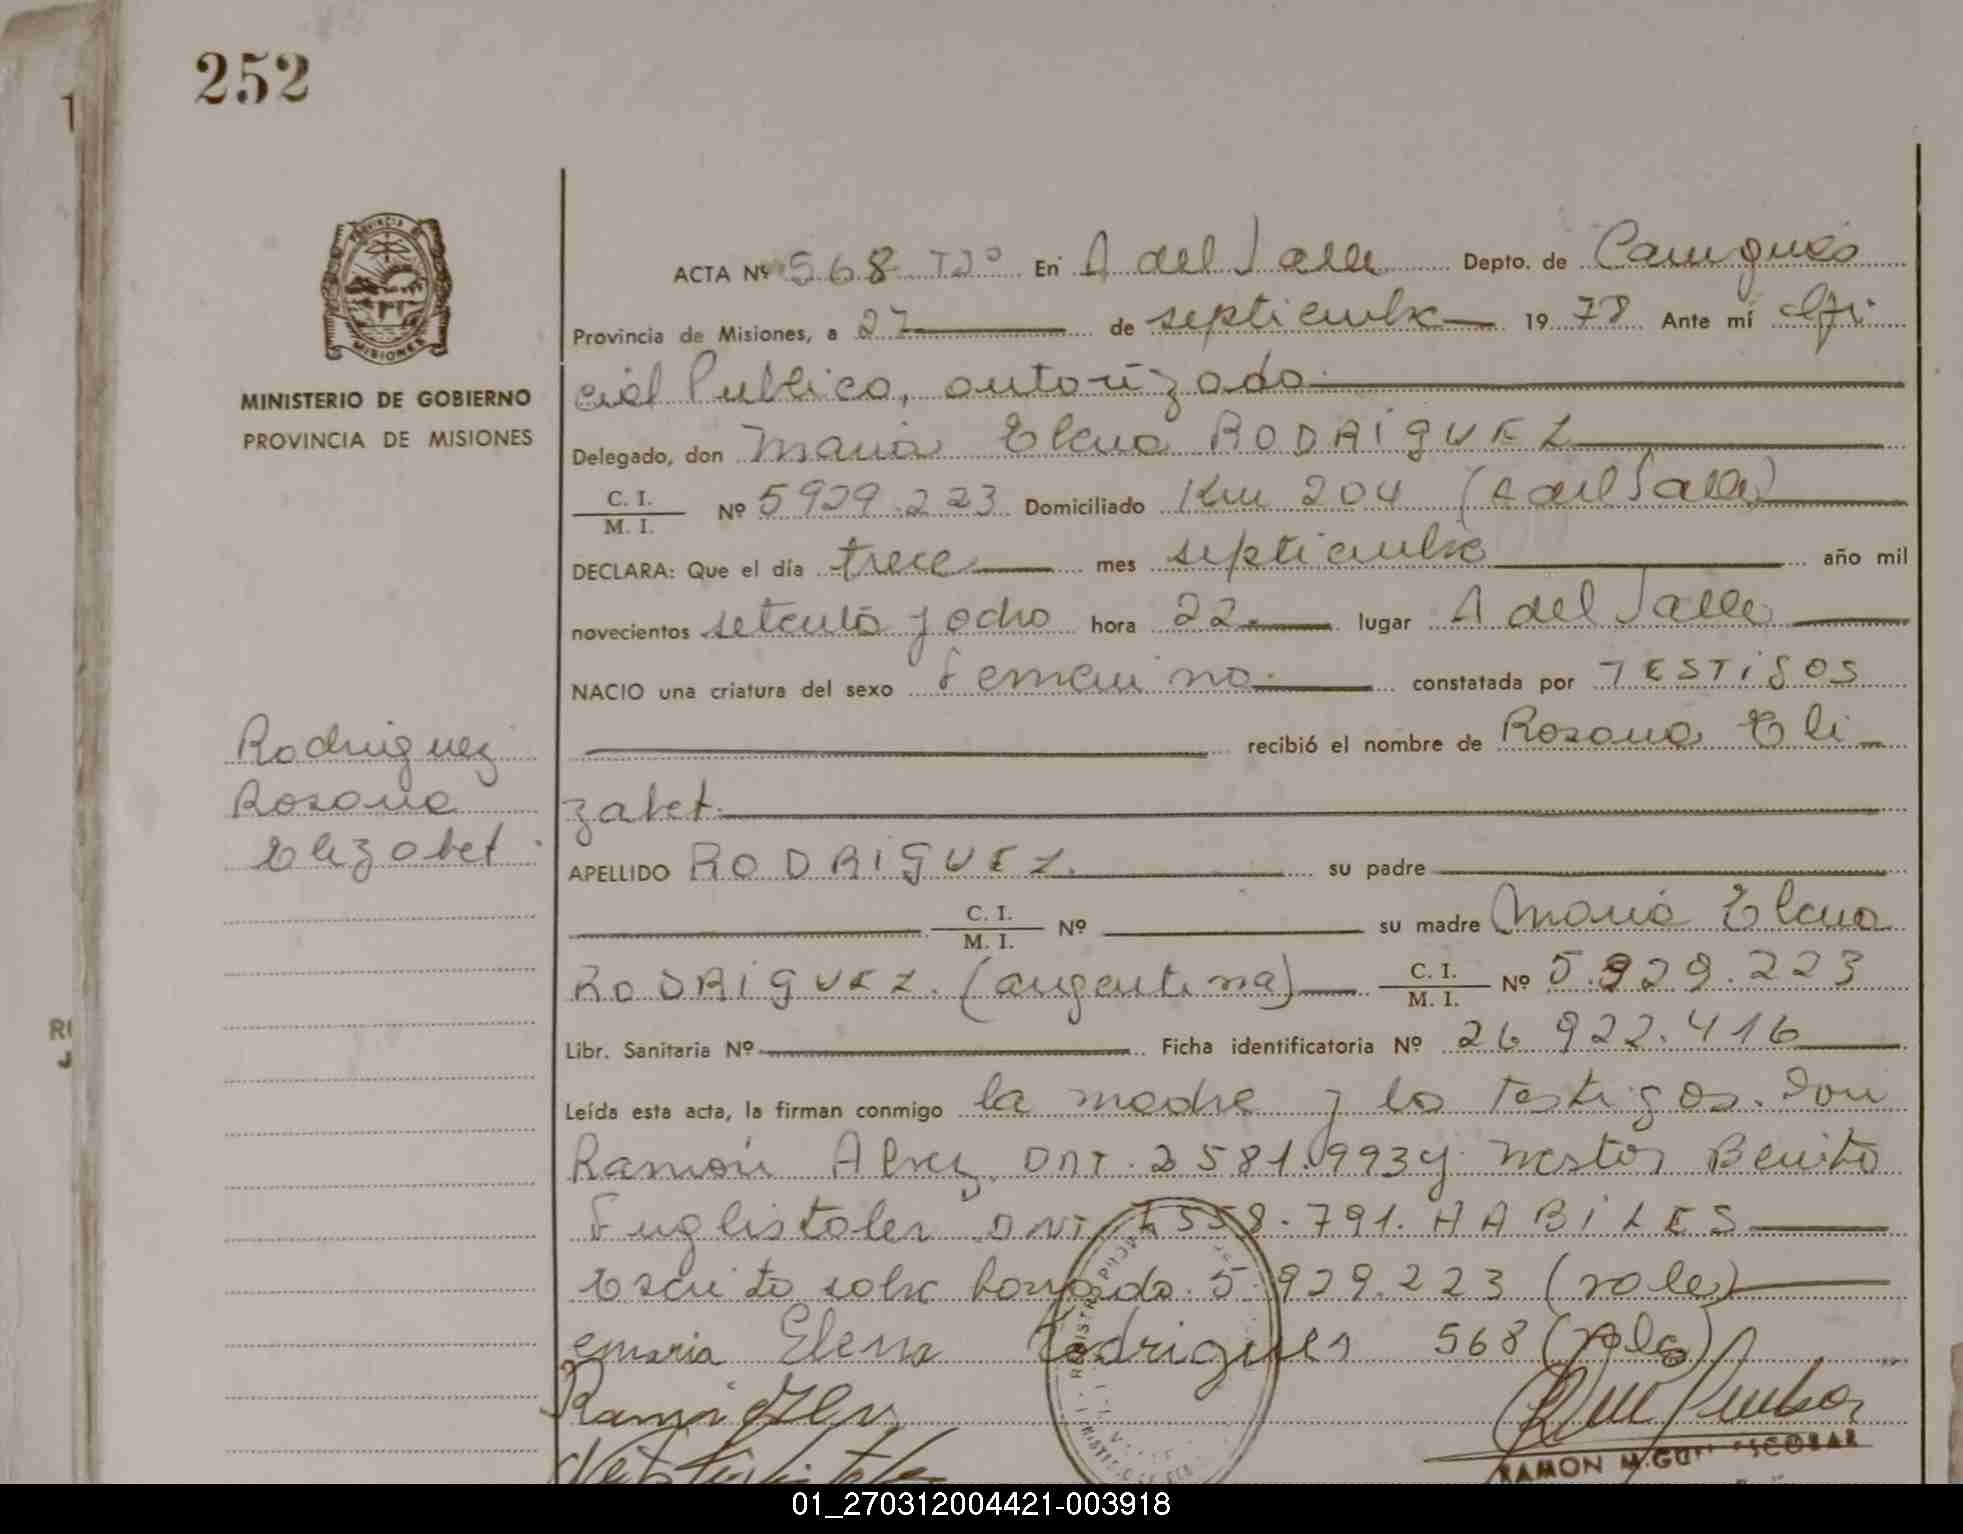 252
PROVINCIA DE
MISIONES
MINISTERIO DE GOBIERNO
PROVINCIA DE MISIONES
Rodriguez
Rosana
Elizabet
ACTA Nº 568 Tº En A del Valle Depto. de Cainguás
Provincia de Misiones, a 27 de septiembre 1978 Ante mí Ofi
cial Publico, autorizado
Delegado, don Maria Elena RODRIGUEZ
C. I.
M. I. Nº 5929.223 Domiciliado Km 204 (A del Valle)
DECLARA: Que el día trece mes septiembre año mil
novecientos setenta y ocho hora 22 lugar A del Valle
NACIO una criatura del sexo Femenino constatada por TESTIGOS
recibió el nombre de Rosana Eli
zabet.
APELLIDO RODRIGUEZ. su padre
C. I.
M. I. Nº su madre Maria Elena
RODRIGUEZ. (argentina) C. I.
M. I. Nº 5.929.223
Libr. Sanitaria Nº Ficha identificatoria Nº 26 922.416
Leída esta acta, la firman conmigo la madre y los testigos. Don
Ramón DNI. Nestor Benito
DNI 558.791. HABILES
Escrito sobre borrado. 5.929.223 (vale)
emaria Elena Rodrigues 568 (vale)
Ramon
RAMON ESCOBAR
01_270312004421-003918